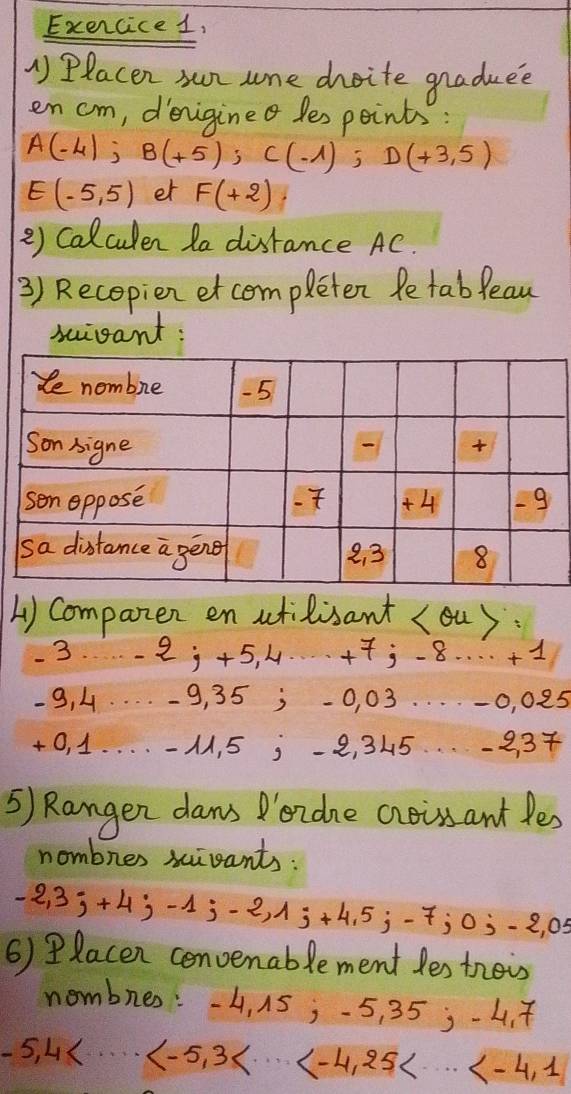 Exercice 1.
1) Placer sur une droite graduée
en cm, d'origine O les points :
A(-4) ; B(+5) ; C(-1) ; D(+3,5)
E(-5,5) et F(+2).
2) Calculer la distance AC.
3) Recopier et compléter le tableau
suivant :
Le nombre -5
Son signe - +
son opposé -7 +4 -9
Sa distance à zéro 2,3 8
4) Comparer en utilisant < ou > :
-3 ..... -2 ; +5,4 .... +7 ; -8 .... +1
-9,4 .... -9,35 ; -0,03 ..... -0,025
+0,1 ..... -11,5 ; -2,345 .... -2,37
5) Ranger dans l'ordre croissant les
nombres suivants :
-2,3 ; +4 ; -1 ; -2,1 ; +4,5 ; -7 ; 0 ; -2,05
6) Placer convenablement les trois
nombres : -4,15 ; -5,35 ; -4,7
-5,4 < ..... < -5,3 < .... < -4,25 < .... < -4,1